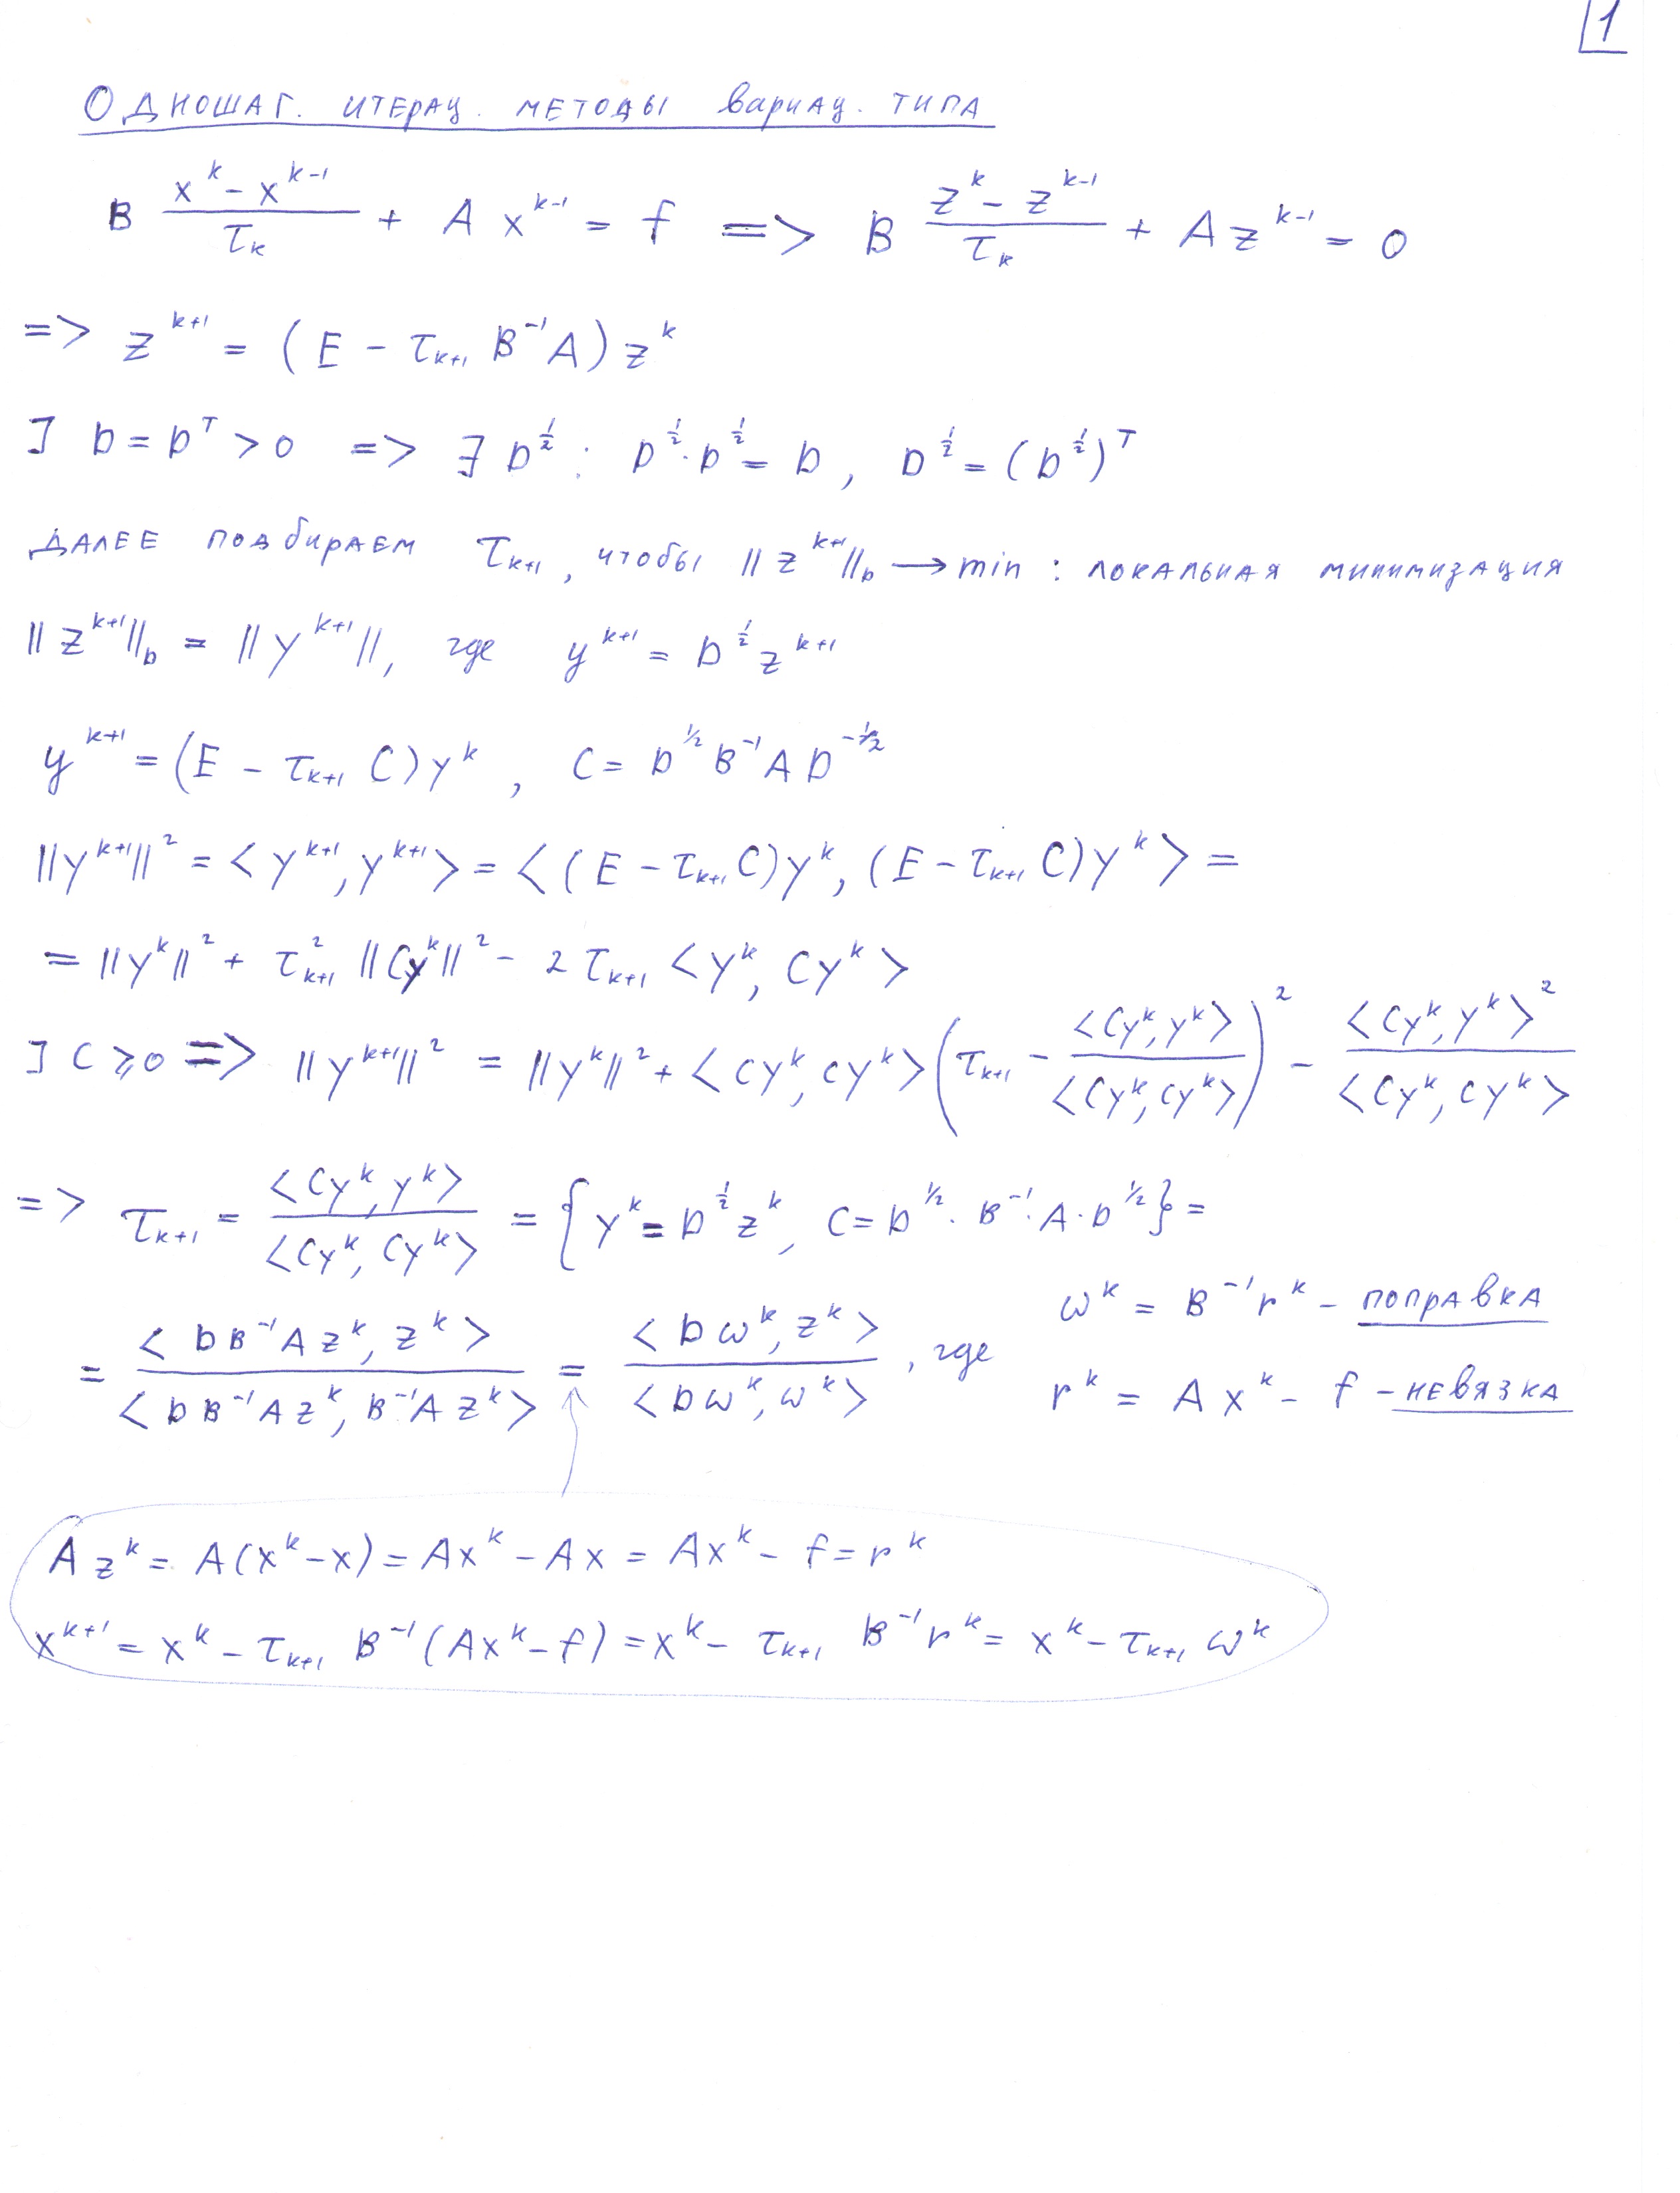 1
Одношаг. итерац. методы вариац. типа
B (x^k - x^{k-1})/τ_k + A x^{k-1} = f => B (z^k - z^{k-1})/τ_k + A z^{k-1} = 0
=> z^{k+1} = (E - τ_{k+1} B^{-1} A) z^k
] D = D^T > 0 => ∃ D^{1/2} : D^{1/2} · D^{1/2} = D, D^{1/2} = (D^{1/2})^T
Далее подбираем τ_{k+1}, чтобы ||z^{k+1}||_D → min : локальная минимизация
||z^{k+1}||_D = ||y^{k+1}||, где y^{k+1} = D^{1/2} z^{k+1}
y^{k+1} = (E - τ_{k+1} C) y^k, C = D^{1/2} B^{-1} A D^{-1/2}
||y^{k+1}||^2 = <y^{k+1}, y^{k+1}> = <(E - τ_{k+1} C) y^k, (E - τ_{k+1} C) y^k> =
= ||y^k||^2 + τ_{k+1}^2 ||C y^k||^2 - 2 τ_{k+1} <y^k, C y^k>
] C ⩾ 0 => ||y^{k+1}||^2 = ||y^k||^2 + <Cy^k, Cy^k> (τ_{k+1} - <Cy^k, y^k>/<Cy^k, Cy^k>)^2 - <Cy^k, y^k>^2/<Cy^k, Cy^k>
=> τ_{k+1} = <Cy^k, y^k>/<Cy^k, Cy^k> = {y^k = D^{1/2} z^k, C = D^{1/2} · B^{-1} · A · D^{1/2}} =
= <D B^{-1} A z^k, z^k>/<D B^{-1} A z^k, B^{-1} A z^k> = <D ω^k, z^k>/<D ω^k, ω^k>, где
ω^k = B^{-1} r^k - поправка
r^k = A x^k - f - невязка
A z^k = A(x^k - x) = Ax^k - Ax = Ax^k - f = r^k
x^{k+1} = x^k - τ_{k+1} B^{-1} (Ax^k - f) = x^k - τ_{k+1} B^{-1} r^k = x^k - τ_{k+1} ω^k